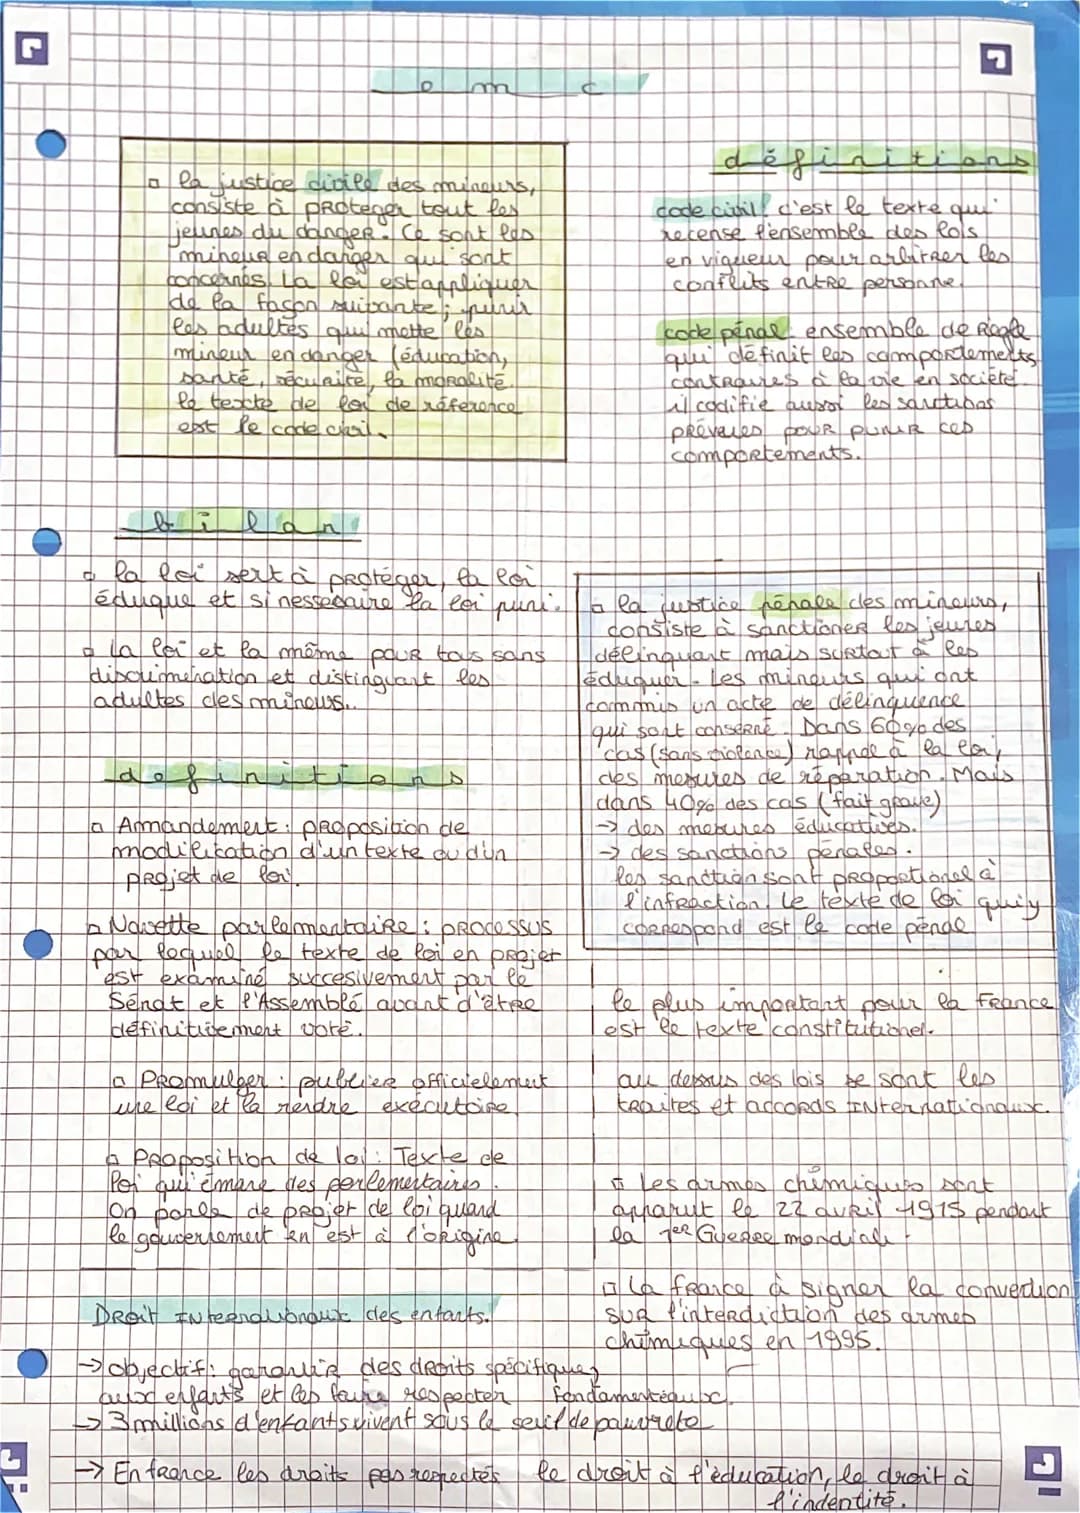 e m c
la justice civile des mineurs,
consiste à proteger tout les
jeunes du danger. Ce sont les
mineur en danger qui sont
concernés. La loi est appliquer
de la façon suivante ; punir
les adultes qui mette les
mineur en danger (éducation,
santé, sécurité, la moralité.
le texte de loi de réference
est le code civil.
définitions
code civil : c'est le texte qui
recense l'ensemble des lois
en vigueur pour arbitrer les
conflits entre personne.
code pénal : ensemble de Règle
qui définit les comportements
contraires à la vie en société.
il codifie aussi les sanctions
prévues pour punir ces
comportements.
bilan
la loi sert à protéger, la loi
éduque et si nessecaire la loi puni.
La loi et la même pour tous sans
discrimination et distinguant les
adultes des mineurs..
definitions
Amandement : proposition de
modification d'un texte ou d'un
projet de loi.
Navette parlementaire : processus
par lequel le texte de loi en projet
est examiné succesivement par le
Sénat et l'Assemblé avant d'être
définitivement voté.
Promulger : publier officielement
une loi et la rendre exécutoire.
Proposition de loi : Texte de
loi qui émane des perlementaires.
On parle de projet de loi quand
le gouvernement en est à l'origine.
la justice pénale des mineurs,
consiste à sanctioner les jeunes
délinquant mais surtout à les
éduquer. Les mineurs qui ont
commis un acte de délinquence
qui sont conserné. Dans 60% des
cas (sans violence) rappel à la loi,
des mesures de réparation. Mais
dans 40% des cas (fait grave)
→ des mesures éducatives.
→ des sanctions pénales.
les sanction sont proportionel à
l'infraction. Le texte de loi qui y
correspond est le code pénal
le plus important pour la France
est le texte constitutionel.
au dessus des lois se sont les
traites et accords Internationaux.
Les armes chimiques sont
apparut le 22 avril 1915 pendant
la 1er Guerre mondiale.
La france à signer la convention
sur l'interdiction des armes
chimiques en 1995.
Droit Internationaux des enfants.
→ objectif : garantir des droits spécifique
aux enfants et les faire respecter fondamentaux.
→ 3 millions d'enfants vivent sous le seuil de pauvreté
→ En france les droits pas respectés le droit à l'éducation, le droit à
l'indentité.